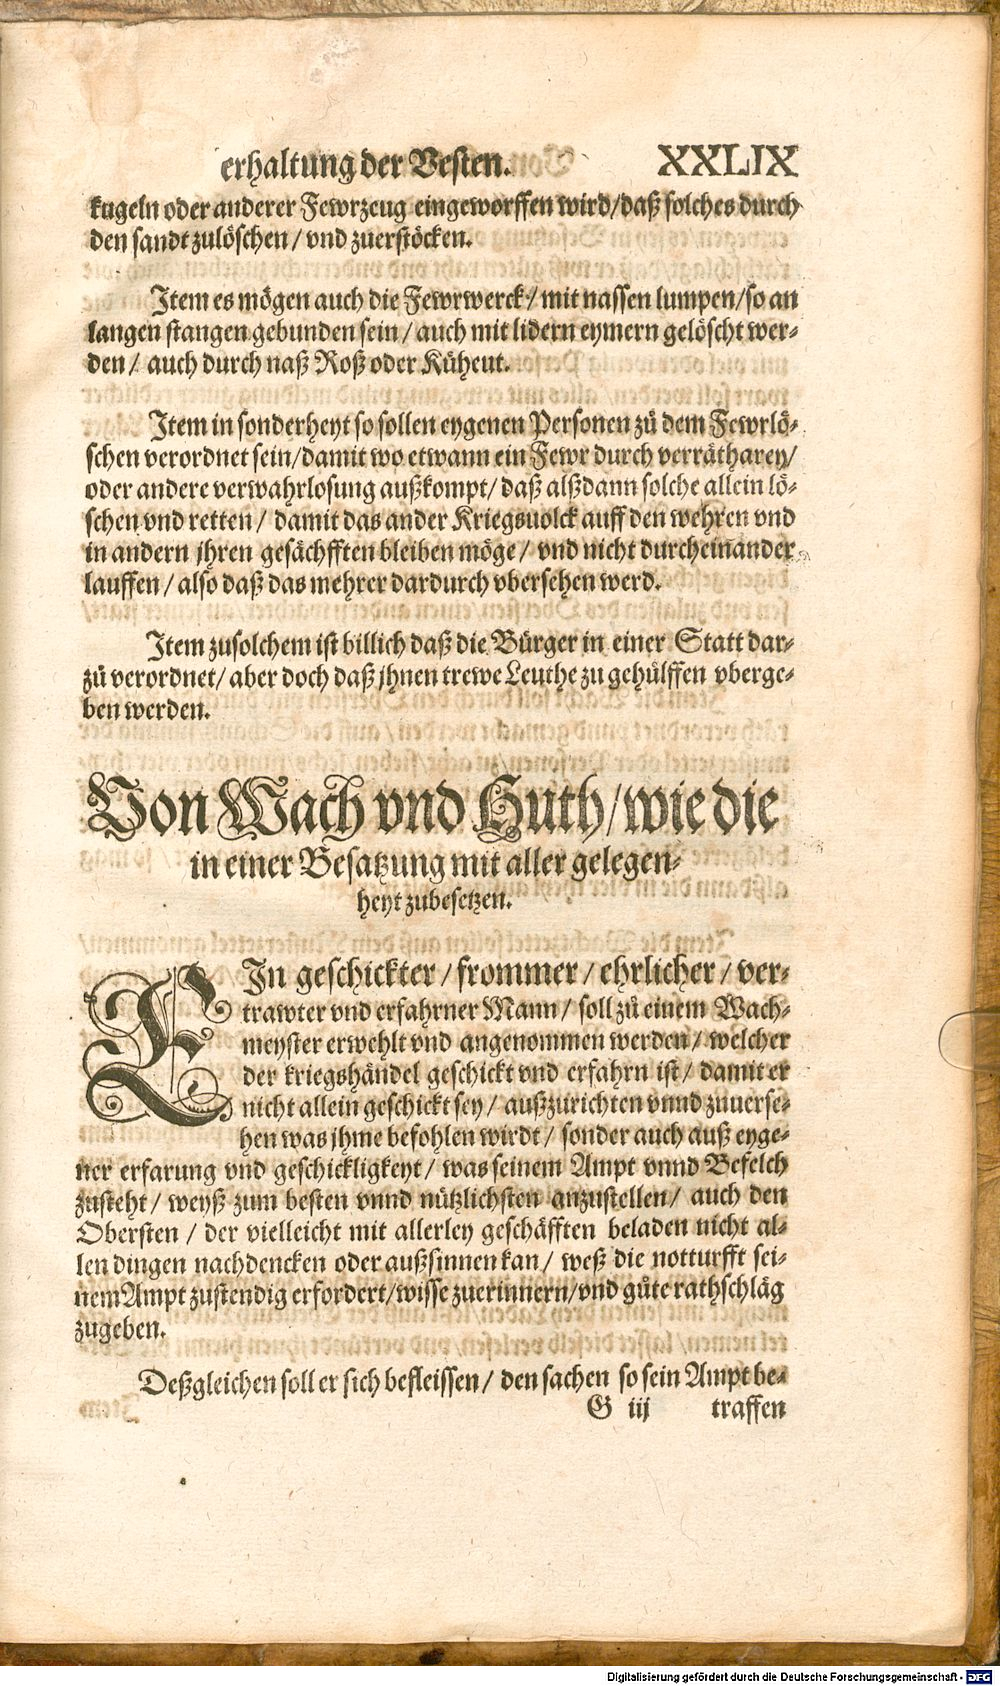 erhaltung der Vesten. XXLIX
kugeln oder anderer Fewrzeug eingeworffen wird/daß solches durch
den sandt zulöschen/ vnd zuerstöcken.
Item es mögen auch die Fewrwerck/ mit nassen lumpen/so an
langen stangen gebunden sein/ auch mit lidern eymern gelöscht wer-
den/ auch durch naß Roß oder Küheut.
Item in sonderheyt so sollen eygenen Personen zů dem Fewrlö-
schen verordnet sein/damit wo etwann ein Fewr durch verrätharey/
oder andere verwahrlosung außkompt/ daß alßdann solche allein lö-
schen vnd retten/ damit das ander Kriegsuolck auff den wehren vnd
in andern jhren gesächfften bleiben möge/ vnd nicht durcheinander
lauffen/ also daß das mehrer dardurch vbersehen werd.
Item zusolchem ist billich daß die Bürger in einer Statt dar-
zů verordnet/ aber doch daß jhnen trewe Leuthe zu gehülffen vberge-
ben werden.
Von Wach vnd Huth/wie die
in einer Besatzung mit aller gelegen-
heyt zubesetzen.
EIn geschickter/ frommer/ ehrlicher/ ver-
trawter vnd erfahrner Mann/ soll zů einem Wach-
meyster erwehlt vnd angenommen werden/ welcher
der kriegshändel geschickt vnd erfahrn ist/ damit er
nicht allein geschickt sey/ außzurichten vnnd zuuerse-
hen was jhme befohlen wirdt/ sonder auch auß eyge-
ner erfarung vnd geschickligkeyt/ was seinem Ampt vnnd Befelch
zusteht/ weyß zum besten vnnd nützlichsten anzustellen/ auch den
Obersten/ der vielleicht mit allerley geschäfften beladen nicht al-
len dingen nachdencken oder außsinnen kan/ weß die notturfft sei-
nem Ampt zustendig erfordert/wisse zuerinnern/vnd gůte rathschläg
zugeben.
Deßgleichen soll er sich befleissen/ den sachen so sein Ampt be-
G iij traffen
Digitalisierung gefördert durch die Deutsche Forschungsgemeinschaft - DFG